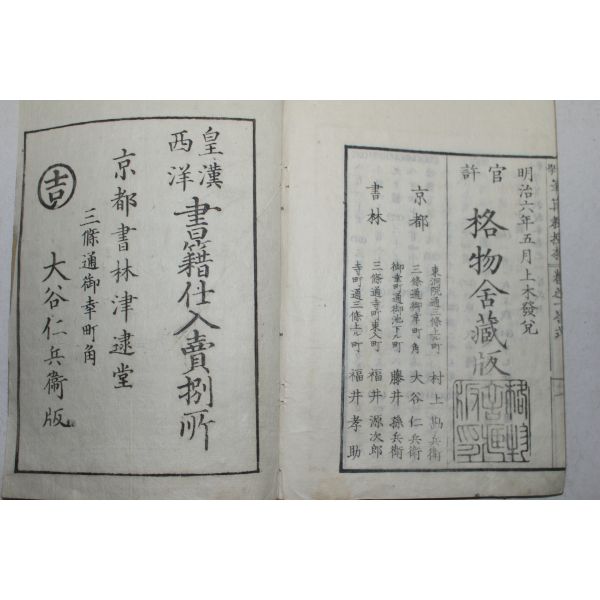 明治六年五月上木發兌
官許
格物舍藏版
京都
書林
東洞院通三條上ル町 村上勘兵衛
三條通御幸町角 大谷仁兵衛
御幸町通御池下ル町 藤井孫兵衛
三條通寺町東入町 福井源次郎
寺町通三條上ル町 福井孝助
皇漢
西洋
書籍仕入賣捌所
京都書林津逮堂
三條通御幸町角
大谷仁兵衞版
吉